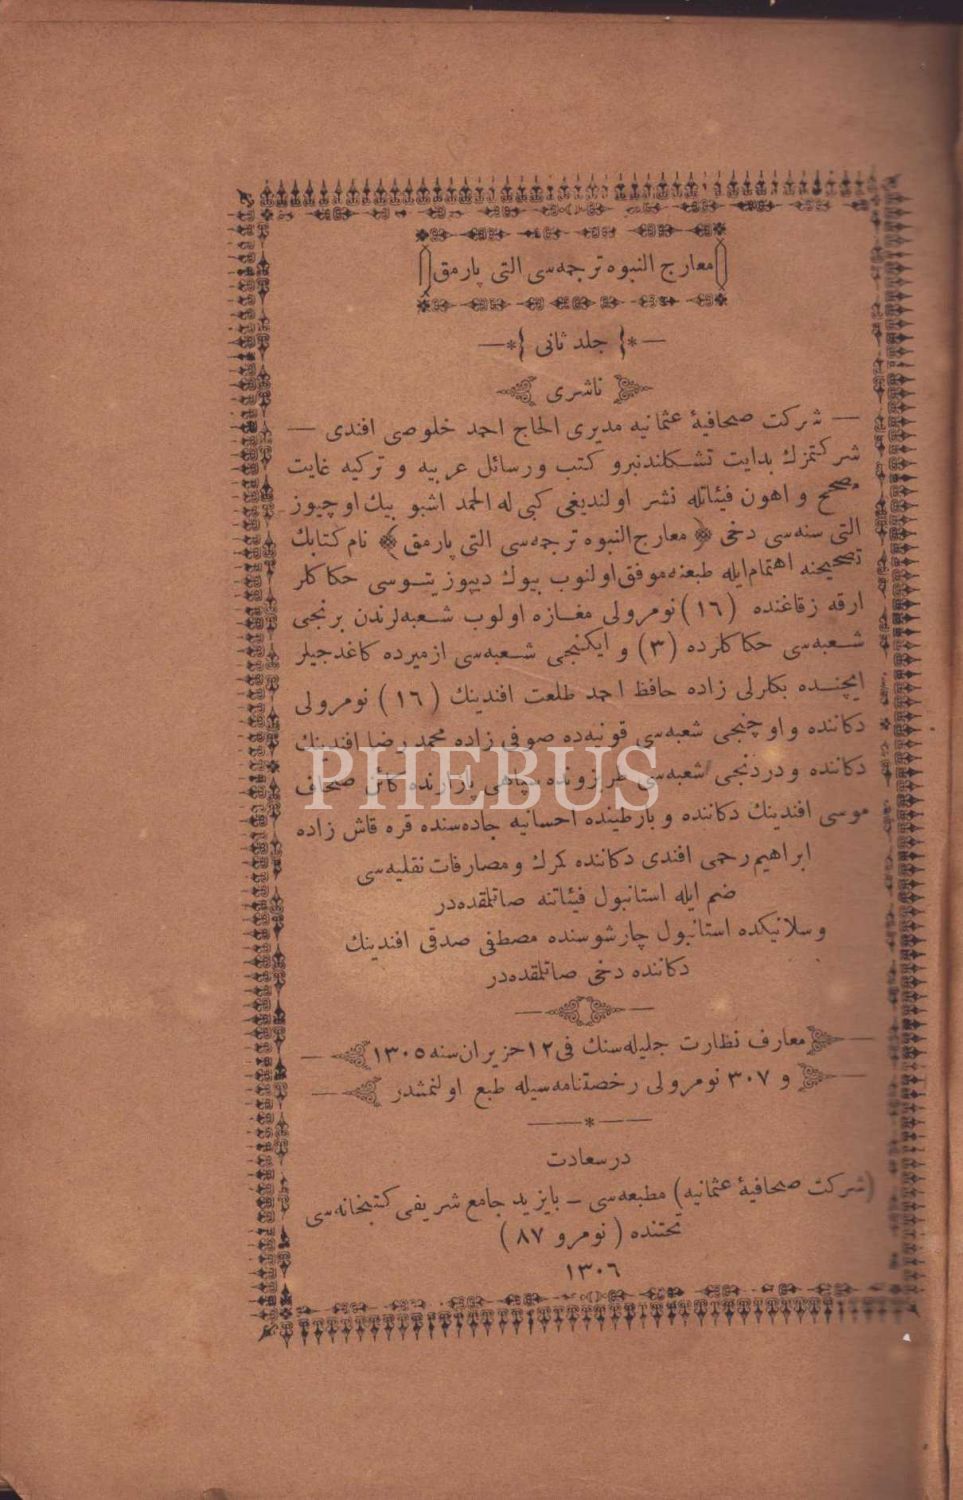 معارج النبوه ترجمه‌سی التی پارمق
جلد ثانی
ناشری
شرکت صحافیهٔ عثمانیه مدیری الحاج احمد خلوصی افندی
شرکتمزك بدایت تشکلندنبرو کتب ورسائل عربیه و ترکیه غایت
مصحح و اهون فیئاتله نشر اولندیغی کبی له الحمد اشبو بیك اوچیوز
التی سنه‌سی دخی ﴿ معارج النبوه ترجمه‌سی التی پارمق ﴾ نام کتابك
تصحیحنه اهتمام ایله طبعنه موفق اولنوب بیوك دیپوزیتوسی حکاکلر
ارقه زقاغنده (١٦) نومرولی مغازه اولوب شعبه‌لرندن برنجی
شعبه‌سی حکاکلرده (٣) و ایکنجی شعبه‌سی ازمیرده کاغدجیلر
ایچنده بکارلی زاده حافظ احمد طلعت افندینك (١٦) نومرولی
دکاننده و اوچنجی شعبه‌سی قونیه‌ده صوفی زاده محمد رضا افندینك
دکاننده ودردنجی شعبه‌سی طرزونده سپاهی پازارنده کائن صحاف
موسی افندینك دکاننده و بارطینده احسانیه جاده‌سنده قره قاش زاده
ابراهیم رحمی افندی دکاننده کمرك و مصارفات نقلیه‌سی
ضم ایله استانبول فیئاتنه صاتلمقده‌در
وسلانیکده استانبول چارشوسنده مصطفی صدقی افندینك
دکاننده دخی صاتلمقده‌در
معارف نظارت جلیله‌سنك فی ١٢ حزیران سنه ١٣٠٥
و ٣٠٧ نومرولی رخصتنامه‌سیله طبع اولنمشدر
درسعادت
(شرکت صحافیهٔ عثمانیه) مطبعه‌سی – بایزید جامع شریفی کتبخانه‌سی
تحتنده (نومرو ٨٧)
١٣٠٦
PHEBUS